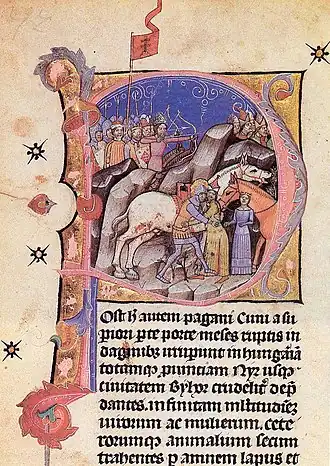 Post h̄ autem pagani Cuni a su
piori pte porte meses ruptis in
daginibꝫ irruperunt in hungariā
totamqꝫ prouinciam Nyr usqꝫ
ciuitatem Byhor crudeliter dep̄
dantes. infinitam multitudinē
uirorum ac mulierum. cete
rorumqꝫ animalium secum
trahentes p amnem lapus et